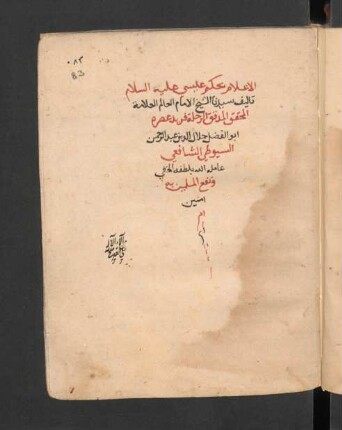 ٠٨٣
83
الاعلام بحكم عيسى عليه السلام
تاليف سيدنا الشيخ الامام العالم العلامة
المحقق المدقق الرحلة فريد عصره
ابو الفضل جلال الدين عبد الرحمن
السيوطي الشافعي
عامله الله بلطفه الخفي
ونفع المسلمين به
امين